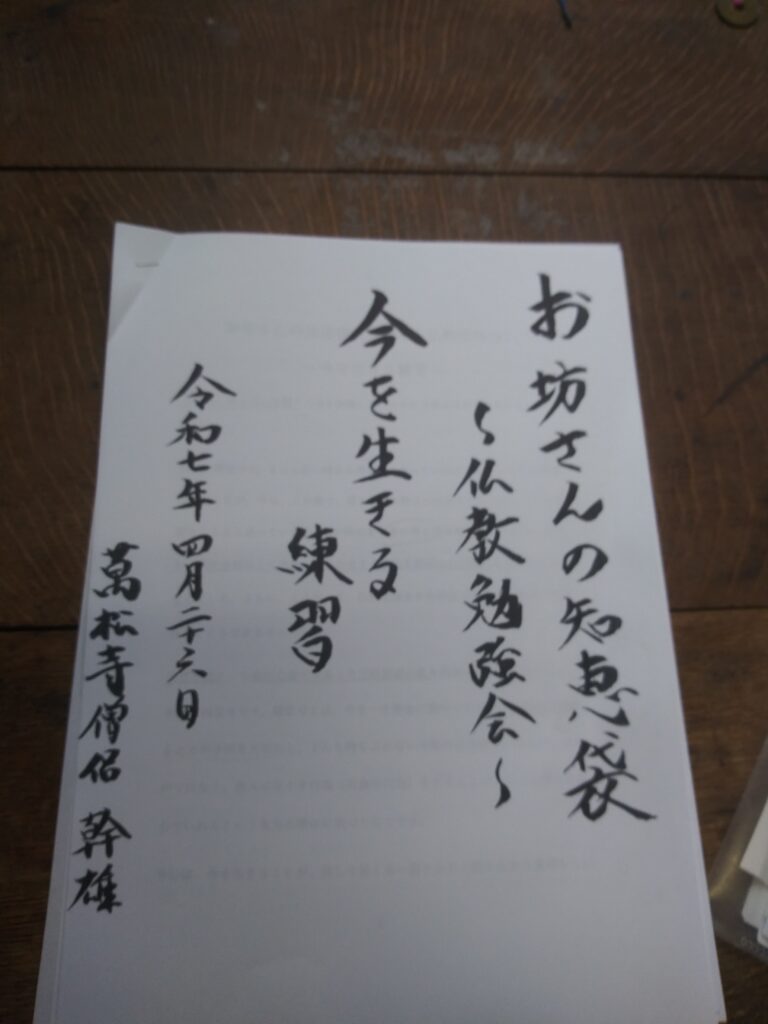 お坊さんの知恵袋
~仏教勉強会~
今を生きる
練習
令和七年四月二十六日
萬松寺僧侶 幹雄